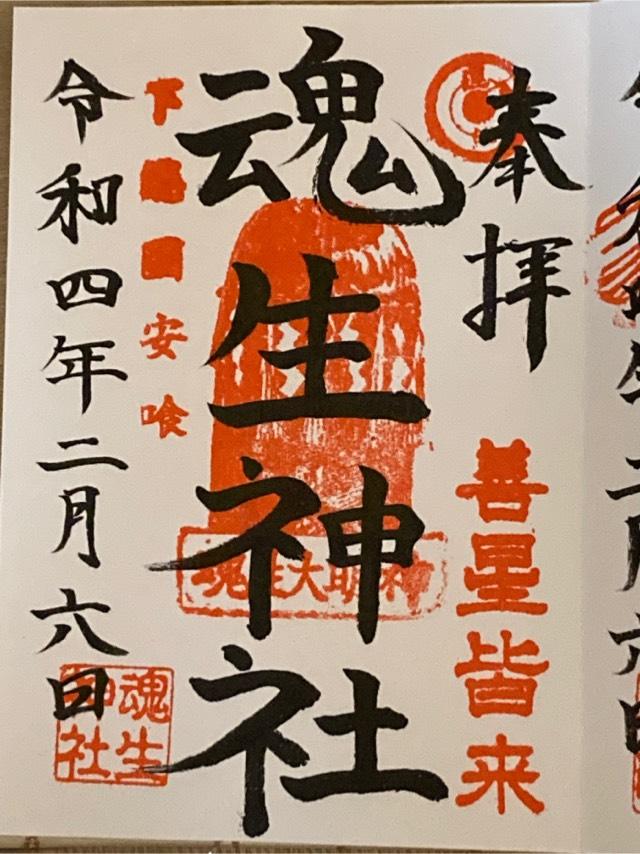 奉拝
善星皆来
魂生神社
魂生大明神
下総国安喰
令和四年二月六日
魂生神社